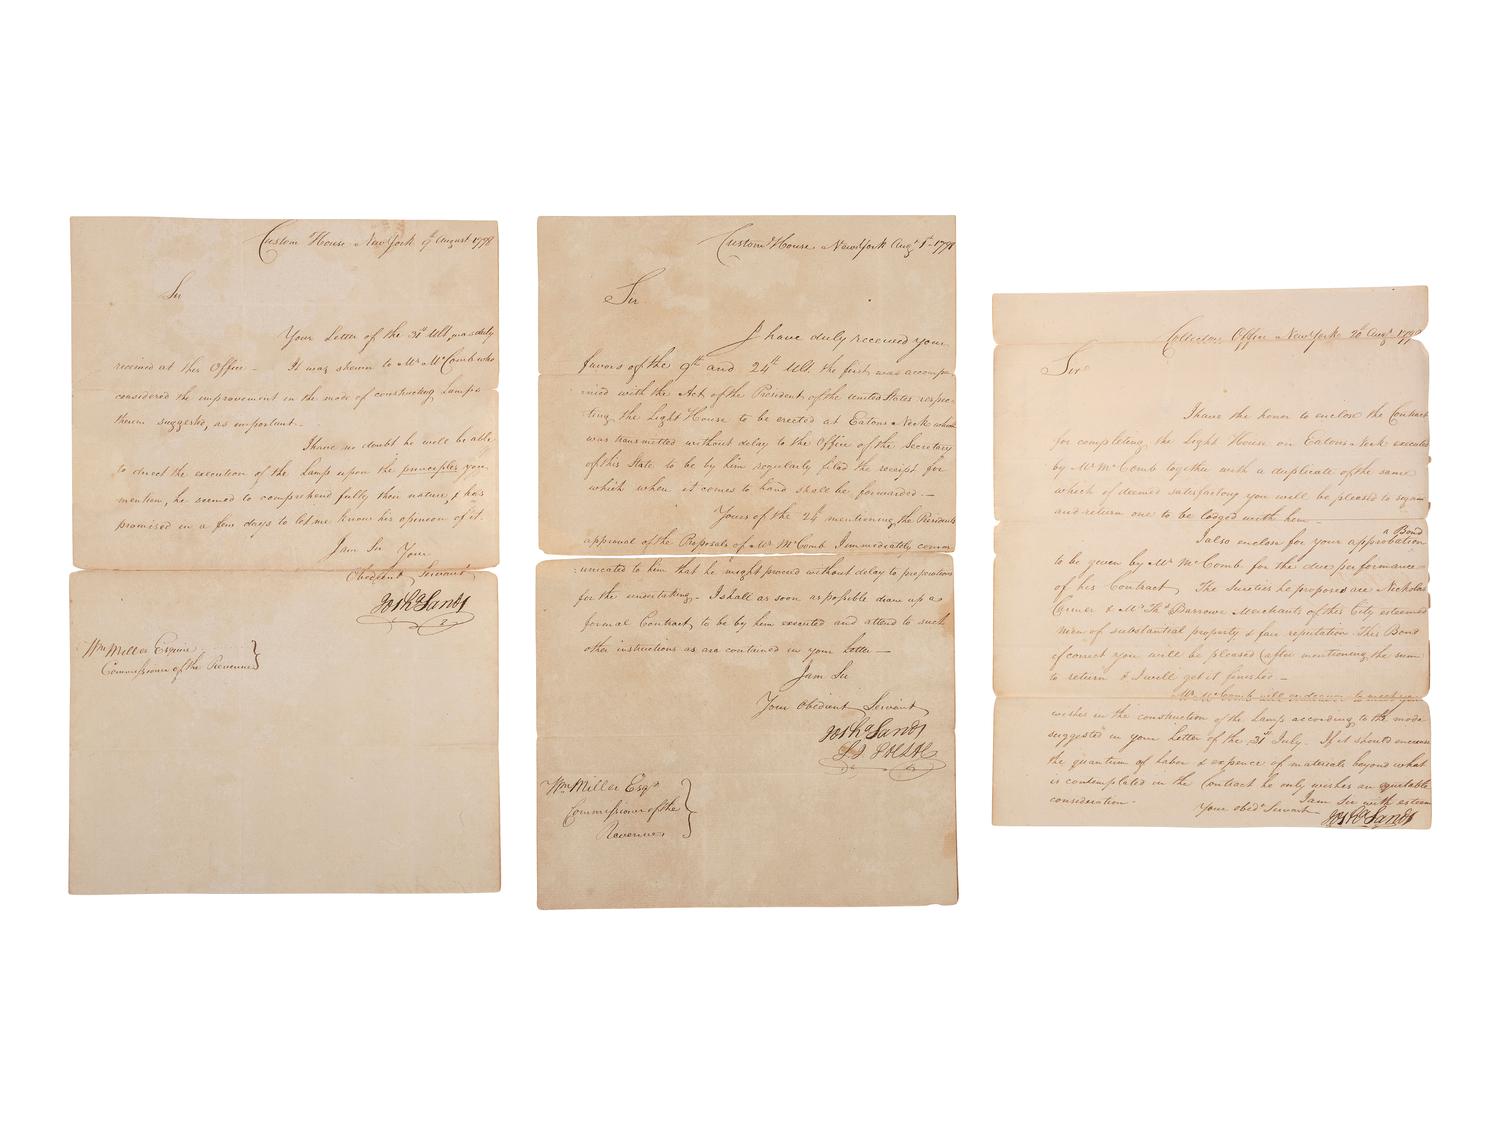 Custom House New York 9th August 1798
Sir
Your Letter of the 31st Ult, was duly
received at this Office - It was shewn to Mr McComb who
considered the improvement in the mode of constructing Lamps
therein suggested, as important.-
I have no doubt he will be able
to direct the execution of the Lamps upon the principles you
mention, he seemed to comprehend fully their nature, & has
promised in a few days to let me know his opinion of it.
I am Sir Your
Obedient Servant
Josha Sands
Wm Miller Esquire
Commissioner of the Revenue
Custom House New York Augt 1st 1798
Sir
I have duly received your
favors of the 9th and 24th Ult. the first was accompa-
nied with the Act of the President of the United States respec-
ting the Light House to be erected at Eatons Neck which
was transmitted without delay to the Office of the Secretary
of this State to be by him regularly filed the receipt for
which when it comes to hand shall be forwarded.-
Yours of the 24th mentioning the Presidents
approval of the Proposals of Mr McComb I immediately comm
-unicated to him that he might proceed without delay to preparations
for the undertaking.- I shall as soon as possible draw up a
formal Contract, to be by him executed and attend to such
other instructions as are contained in your Letter-
I am Sir
Your Obedient Servant
Josha Sands
Wm Miller Esqr
Commissioner of the
Revenue
Collectors Office New York 20th Augt 1798
Sir
I have the honor to enclose the Contract
for completing the Light House on Eatons Neck executed
by Mr McComb together with a duplicate of the same
which if deemed satisfactory you will be pleased to sign
and return one to be lodged with him-
a Bond
I also enclose for your approbation
to be given by Mr McComb for the due performance
of his Contract, The Sureties he proposes are Nicholas
& Mr Ths Barrow Merchants of this City esteemed
men of substantial property & fair reputation. This Bond
if correct you will be pleased (after mentioning the sum
to return & I will get it finished.-
Mr McComb will endeavor to meet your
wishes in the construction of the Lamps according to the mode
suggested in your Letter of the 31st July. If it should encrease
the quantum of Labor & expence of materials beyond what
is contemplated in the Contract he only wishes an equitable
consideration.
I am Sir with esteem
Your obedt Servant
Josha Sands